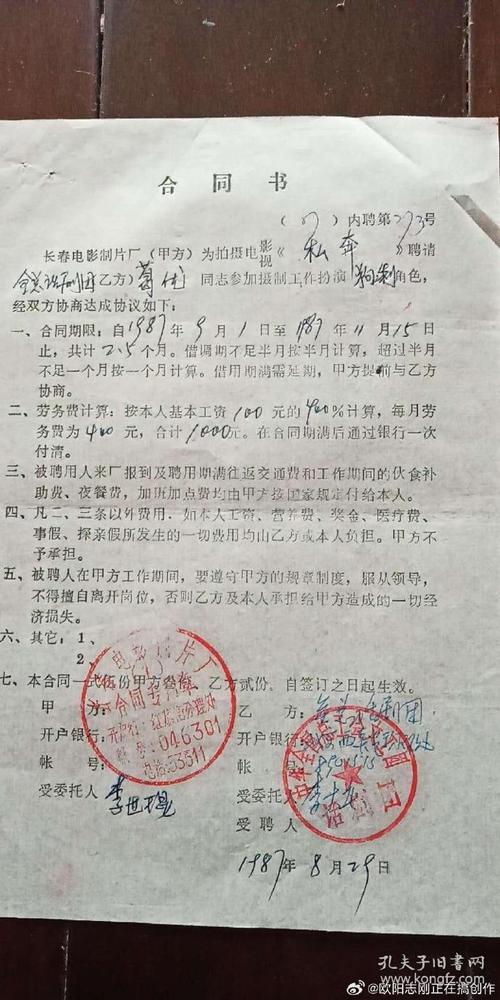 合同书
(87)内聘第273号
长春电影制片厂(甲方)为拍摄电影视《私奔》聘请
全总话剧团(乙方)葛优同志参加摄制工作扮演角色,
经双方协商达成协议如下:
一、合同期限:自1987年9月1日至1987年11月15日
止,共计2.5个月。借调期不足半月按半月计算,超过半月
不足一个月按一个月计算。借用期满需延期,甲方提前与乙方
协商。
二、劳务费计算:按本人基本工资100元的400%计算,每月劳
务费为400元,合计1000元。在合同期满后通过银行一次
付清。
三、被聘用人来厂报到及聘用期满往返交通费和工作期间的伙食补
助费、夜餐费,加班加点费均由甲方按国家规定付给本人。
四、凡二、三条以外费用,如本人工资、营养费、奖金、医疗费、
事假、探亲假所发生的一切费用均由乙方或本人负担。甲方不
予承担。
五、被聘人在甲方工作期间,要遵守甲方的规章制度,服从领导,
不得擅自离开岗位,否则乙方及本人承担给甲方造成的一切经
济损失。
六、其它:1、
2、
七、本合同一式伍份甲方叁份,乙方贰份,自签订之日起生效。
甲方:
乙方:全总话剧团
开户银行:
开户银行:
帐号:
帐号:
受委托人
受委托人
受聘人
1987年8月29日
电影制片厂
合同专用章
046301
电话:53511
话剧团
孔夫子旧书网
@欧阳志刚正在搞创作